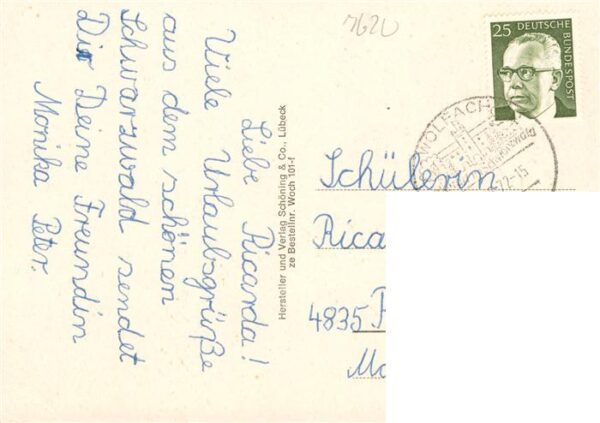 7620
25 DEUTSCHE BUNDESPOST
WOLFACH
Schwarzwald
72-15
Liebe Ricarda!
Viele Urlaubsgrüße
aus dem schönen
Schwarzwald sendet
Dir Deine Freundin
Monika Peter.
Hersteller und Verlag Schöning & Co., Lübeck
ze Bestellnr. Woch 101-f
Schülerin
Rica
4835